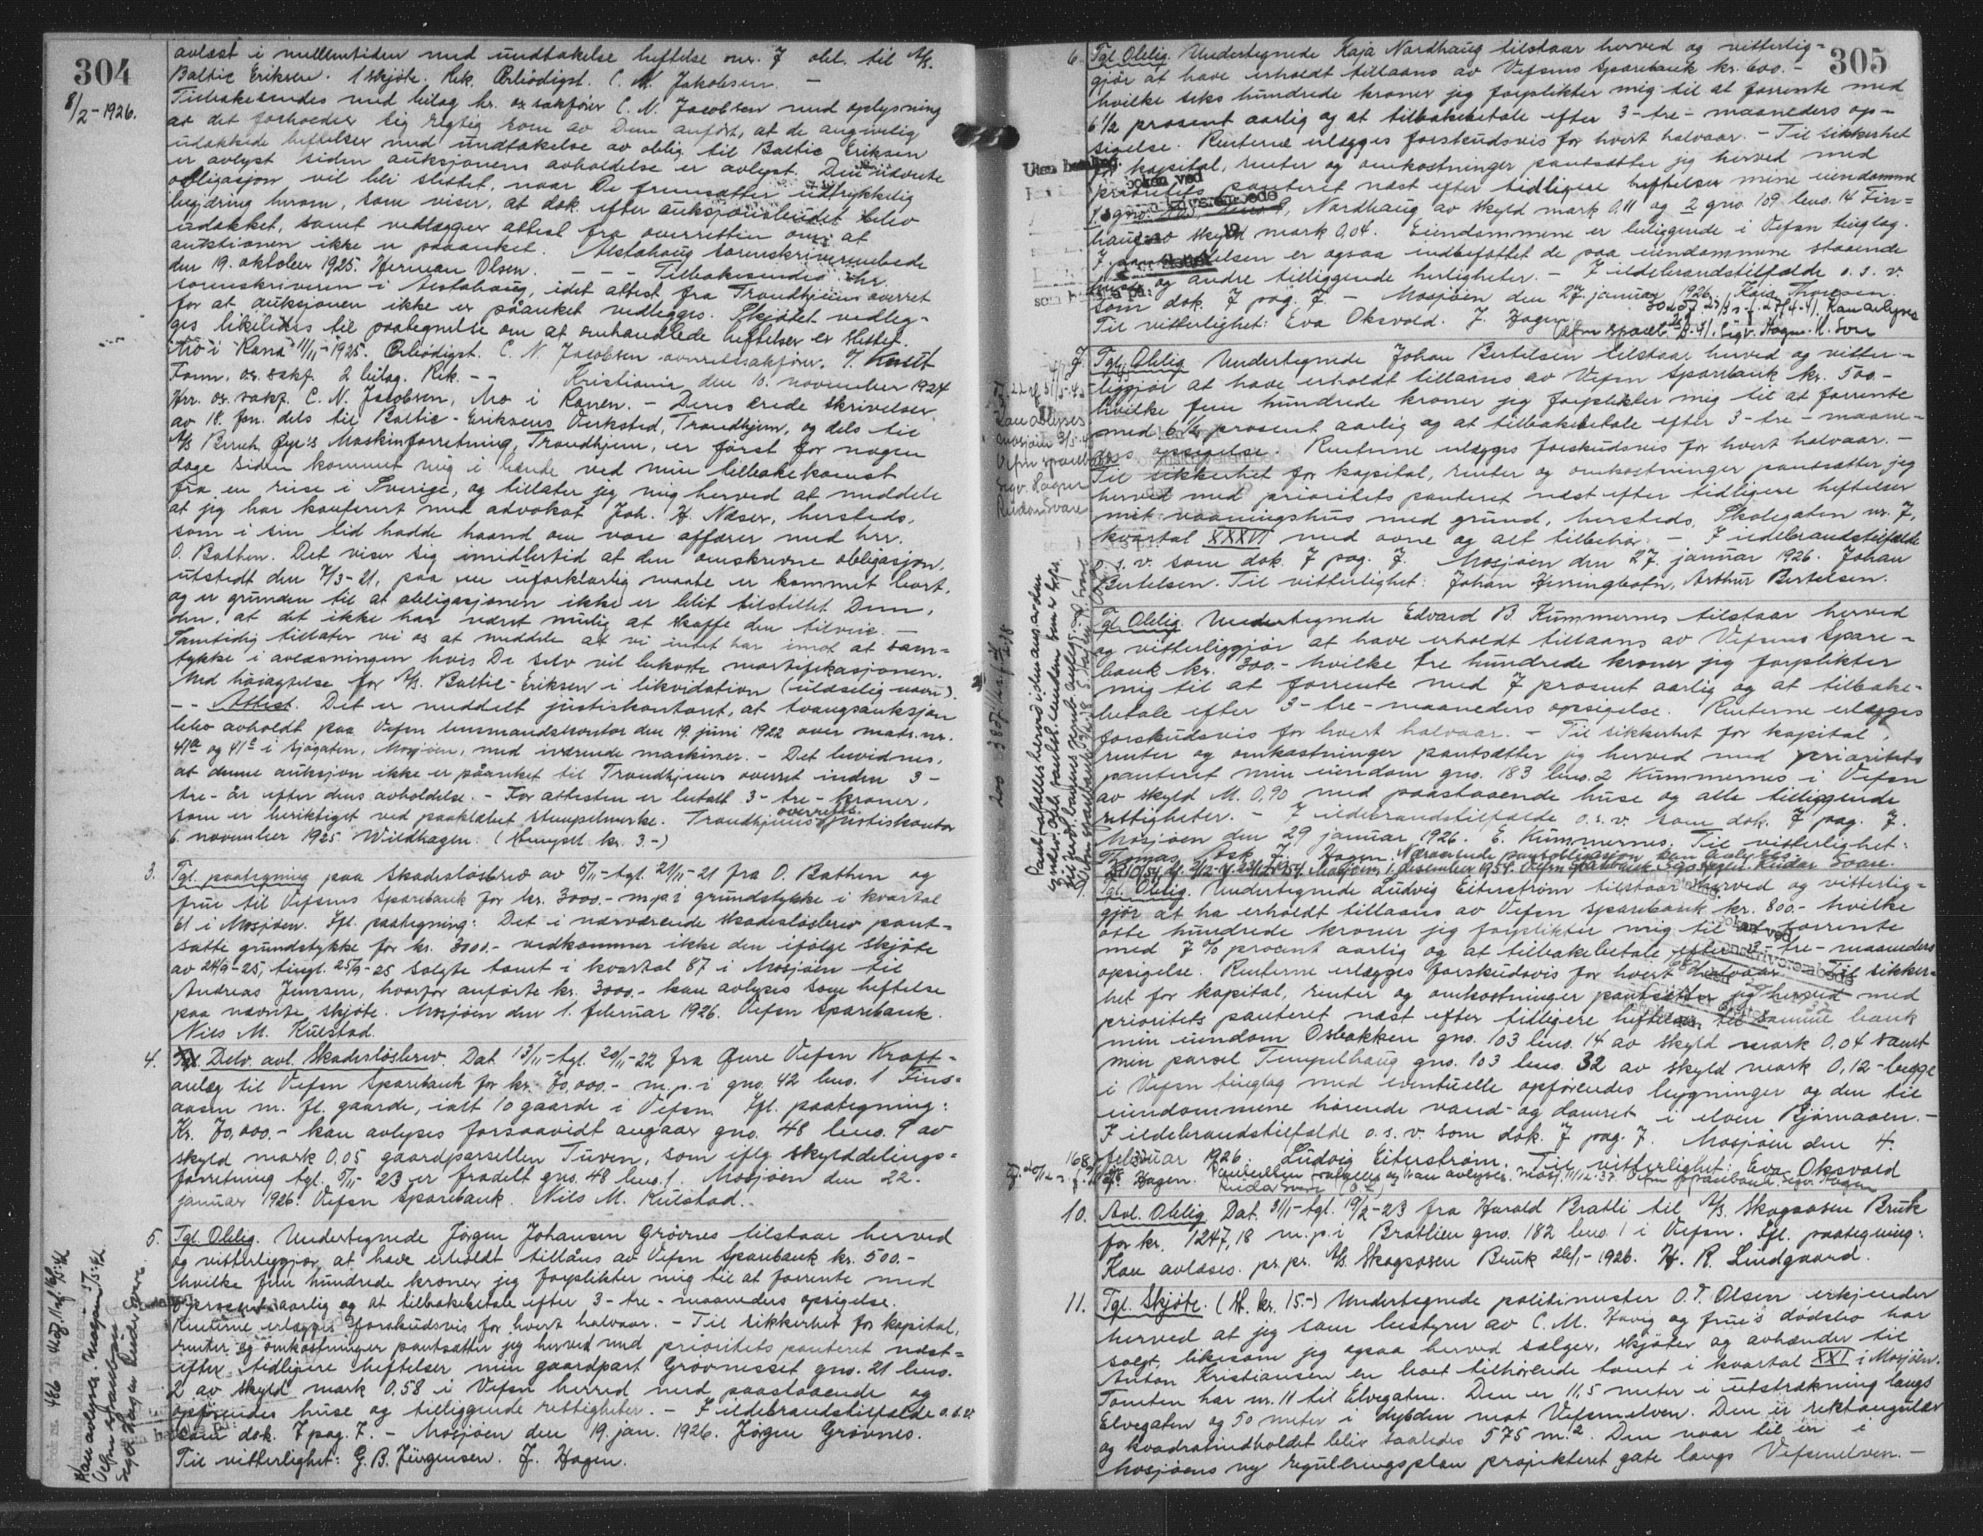 304
8/2-1926.
avlæst i mellemtiden med undtakelse heftelse nr. 7 obl. til A/S.
Baltic Eriksen. 1 skjøte. Rek. Ærbødigst. C. N. Jakobsen —
Tilbakesendes med bilag hr. o.r. sakfører C. N. Jacobsen med oplysning
at det forholder sig rigtig som av Dem anført, at de angivelig
udækkede heftelser med undtakelse av oblig. til Baltic Eriksen
er avlyst siden auksjonens avholdelse er avlyst. Den utvette
obligasjon vil bli slettet, naar De fremsætter udtrykkelig
begjæring herom, som viser, at dok. efter auksjonsbudet blev
udækket, samt vedlægger attest fra overretten om, at
auktionen ikke er paaanket. Alstahaug sorenskriverembede
den 19. oktober 1925. Herman Olsen. – – – Tilbakesendes hr.
sorenskriveren i Alstahaug, idet attest fra Trondhjems overret
for at auksjonen ikke er påanket vedlegges. Skjøtet vedleg=
ges likeledes til paategnelse om at omhandlede heftelser er slettet.
Mo i Rana 11/11-1925. Ærbødigst. C. N. Jacobsen overretssakfører. /J. Knutt
Form. o.r. sakf. 2 bilag. Rek. – – Kristiania, den 10. november 1924
Hrr. o.r. sakf. C. N. Jacobsen, Mo i Ranen. – Deres ærede skrivelser
av 18. fm. dels til Baltic-Eriksens Verksted, Trondhjem, og dels til
A/S Berch Øyens Maskinforretning, Trondhjem, er først for nogen
dage siden kommet mig i hænde ved min tilbakekomst
fra en reise i Sverige, og tillater jeg mig herved at meddele
at jeg har konferert med advokat Joh. H. Næser, hersteds,
som i sin tid hadde haand om vore affærer med hrr.
O. Bathen. Det viser sig imidlertid at den omskrevne obligasjon,
utstedt den 7/3-21, paa en uforklarlig maate er kommet bort,
og er grunden til at obligasjonen ikke er blit tilstillet Dem,
den, at det ikke har været mulig at skaffe den tilveie. –
Samtidig tillater vi os at meddele at vi intet har imot at sam=
tykke i avlæsningen hvis De selv vil bekoste mortifikasjonen.
Med høiagtelse for A/S. Baltic-Eriksen i likvidation (ulæselig navn).
– – Attest. Det er meddelt justiskontoret, at tvangsauksjon
blev avholdt paa Vefsn lensmandskontor den 19. juni 1922 over matr. nr.
41a og 41c i Sjøgaten, Mosjøen, med iværende maskiner. – Det bevidnes,
at denne auksjon ikke er påanket til Trondhjems overret inden 3-
tre- år efter dens avholdelse. – For attesten er betalt 3-tre-kroner,
som er beriktiget ved paaklæbet stempelmerke. Trondhjems overretts justiskontor
6. november 1925. Wildhagen. (Stempl. kr. 3.-)
3. Tgl. paategning paa skadesløsbrev av 5/11-tgl. 29/11-21 fra O. Bathen og
frue til Vefsns Sparebank for kr. 3000.- m.p. i grundstykke i kvartal
61 i Mosjøen. Ifl. paategning: Det i nærværende skadesløsbrev pant-
satte grundstykke for kr. 3000.- vedkommer ikke den ifølge skjøte
av 24/9-25, tingl. 25/9-25 solgte tomt i kvartal 87 i Mosjøen til
Andreas Jenssen, hvorfor anførte kr. 3000.- kan avlyses som heftelse
paa nævnte skjøte. Mosjøen den 1. februar 1926. Vefsn Sparebank.
Nils M. Kulstad.
4. Tgl. Delv. avl. Skadesløsbrev. Dat. 13/11-tgl. 20/11-22 fra Øvre Vefsn Kraft-
anlæg til Vefsn Sparebank for kr. 70,000.- m.p. i gno. 42 bno. 1 Fins-
aasen m. fl. gaarde, ialt 10 gaarde i Vefsn. Ifl. paategning:
Kr. 70,000.- kan avlyses forsaavidt angaar gno. 48 bno. 9 av
skyld mark 0,05 gaardparsellen Tuven, som iflg. skylddelings-
forretning tgl. 5/11-23 er fradelt gno. 48 bno. 1. Mosjøen den 22.
januar 1926. Vefsn Sparebank. Nils M. Kulstad.
5. Tgl. Oblig. Undertegnede Jørgen Johansen Grøvnes tilstaar herved
og vitterliggjør at have erholdt tillåns av Vefsn Sparebank kr. 500.-
hvilke fem hundrede kroner jeg forplikter mig til at forrente med
prosent aarlig og at tilbakebetale efter 3-tre-maaneders opsigelse.
Renterne erlægges forskudsvis for hvert halvaar. – Til sikkerhet for kapital,
renter og omkostninger pantsætter jeg herved med prioritets panteret næst=
efter tidligere heftelser min gaardpart Grøvnesset gno. 21 bno.
2 av skyld mark 0,58 i Vefsn herred med paastaaende og
opførendes huse og tilliggende rettigheter. – I ildebrandstilfælde o.s.v.
som dok. 7 pag. 7. – Mosjøen den 19. jan. 1926. Jørgen Grøvnes.
Til vitterlighet: G. B. Jürgensen. J. Hagen.
Kan avlyses. Mosjøen
Vefsn sparebank
Sigv. Hagen Reidar Svare
305
6. Tgl. Oblig. Undertegnede Kaja Nordhaug tilstaar herved og vitterlig=
gjør at have erholdt tillaans av Vefsns Sparebank kr. 600.-
hvilke seks hundrede kroner jeg forplikter mig til at forrente med
6 1/2 prosent aarlig og at tilbakebetale efter 3-tre-maaneders op-
sigelse. Renterne erlægges forskudsvis for hvert halvaar. – Til sikkerhet
for kapital, renter og omkostninger pantsætter jeg herved med
prioritets panteret næst efter tidligere heftelser mine eiendomme
Nordhaug av skyld mark 0,11 og 2 gno. 109 bno. 14 Fin=
haug av skyld mark 0,04. Eiendommene er beliggende i Vefsn tinglag.
I pantsættelsen er ogsaa indbefattet de paa eiendommene staaende
huse og andre tilliggende herligheter. – I ildebrandstilfælde o.s.v.
som dok. 7 pag. 7. – Mosjøen den 27. januar 1926. Kaja Thoresen.
Til vitterlighet: Eva Oksvold. J. Hagen.
7. Tgl. Oblig. Undertegnede Johan Bertelsen tilstaar herved og vitter-
liggjør at have erholdt tillaans av Vefsn Sparebank kr. 500.-
hvilke fem hundrede kroner jeg forplikter mig til at forrente
med 6 1/2 prosent aarlig og at tilbakebetale efter 3-tre-maane-
ders opsigelse. Renterne erlægges forskudsvis for hvert halvaar. –
Til sikkerhet for kapital, renter og omkostninger pantsætter jeg
herved med prioritets panteret næst efter tidligere heftelser
mit vaaningshus med grund, hersteds, Skolegaten nr. 7,
kvartal XXXVI med ovne og alt tilbehør. – I ildebrandstilfælde
o.s.v. som dok. 7 pag. 7. Mosjøen den 27. januar 1926. Johan
Bertelsen. Til vitterlighet: Johan Henninghofn, Arthur Bertelsen.
Tgl. Oblig. Undertegnede Edvard B. Kummernes tilstaar herved
og vitterliggjør at have erholdt tillaans av Vefsns Spare-
bank kr. 300.- hvilke tre hundrede kroner jeg forplikter
mig til at forrente med 7 prosent aarlig og at tilbake-
betale efter 3-tre-maaneders opsigelse. Renterne erlægges
forskudsvis for hvert halvaar. – Til sikkerhet for kapital,
renter og omkostninger pantsætter jeg herved med prioritets
panteret min eiendom gno. 183 bno. 2 Kummernes i Vefsn
av skyld M. 0,90 med paastaaende huse og alle tilliggende
rettigheter. – I ildebrandstilfælde o.s.v. som dok. 7 pag. 7.
Mosjøen den 29 januar 1926. E. Kummernes. Til vitterlighet:
Thomas Ask. J. Hagen. Nærværende pantobligasjon kan avlyses.
Mosjøen 1. desember 1954. Vefsn Sparebank. Reidar Svare.
Tgl. Oblig. Undertegnede Ludvig Eiterstrøm tilstaar herved og vitterlig=
gjør at ha erholdt tillaans av Vefsn Sparebank kr. 800.- hvilke
otte hundrede kroner jeg forplikter mig til at forrente
med 7 % procent aarlig og at tilbakebetale efter 3-tre-maaneders
opsigelse. Renterne erlægges forskudsvis for hvert halvaar. Til sikker=
het for kapital, renter og omkostninger pantsætter jeg herved med
prioritets panteret næst efter tidligere heftelser til samme bank
min eiendom Osbakken gno. 103 bno. 14 av skyld mark 0,04 samt
min parsel Tempelhaug gno. 103 bno. 32 av skyld mark 0,12 - begge
i Vefsn tinglag med eventuelle opførendes bygninger og den til
eiendommene hørende vand- og damret i elven Bjørnaaen. –
I ildebrandstilfælde o.s.v. som dok. 7 pag. 7. Mosjøen den 4.
februar 1926. Ludvig Eiterstrøm. Til vitterlighet: Eva Oksvold
J. Hagen.
10. Avl. Oblig. Dat. 3/11-tgl. 19/2-23 fra Harald Bratli til A/S. Skogsosen Bruk
for kr. 1247,18 m.p. i Bratlien gno. 182 bno. 1 i Vefsn. Ifl. paategning:
Kan avlæses. pr. pr. A/S. Skogsosen Bruk 26/1-1926. H. R. Lindgaard.
11. Tgl. Skjøte. (St. kr. 15.-) Undertegnede politimester O. T. Olsen erkjender
herved at jeg som bestyrer av C. M. Havig og frue's dødsbo har
solgt, likesom jeg ogsaa herved sælger, skjøter og avhænder til
Anton Kristiansen en boet tilhørende tomt i kvartal XXI i Mosjøen.
Tomten har nr. 11 til Elvegaten. Den er 11,5 meter i utstrækning langs
Elvegaten og 50 meter i dybden mot Vefsnelven. Den er rektangulær
og kvadratindholdet blir saaledes 575 m.². Den naar til en i
Mosjøens ny reguleringsplan projekteret gate langs Vefsnelven. –